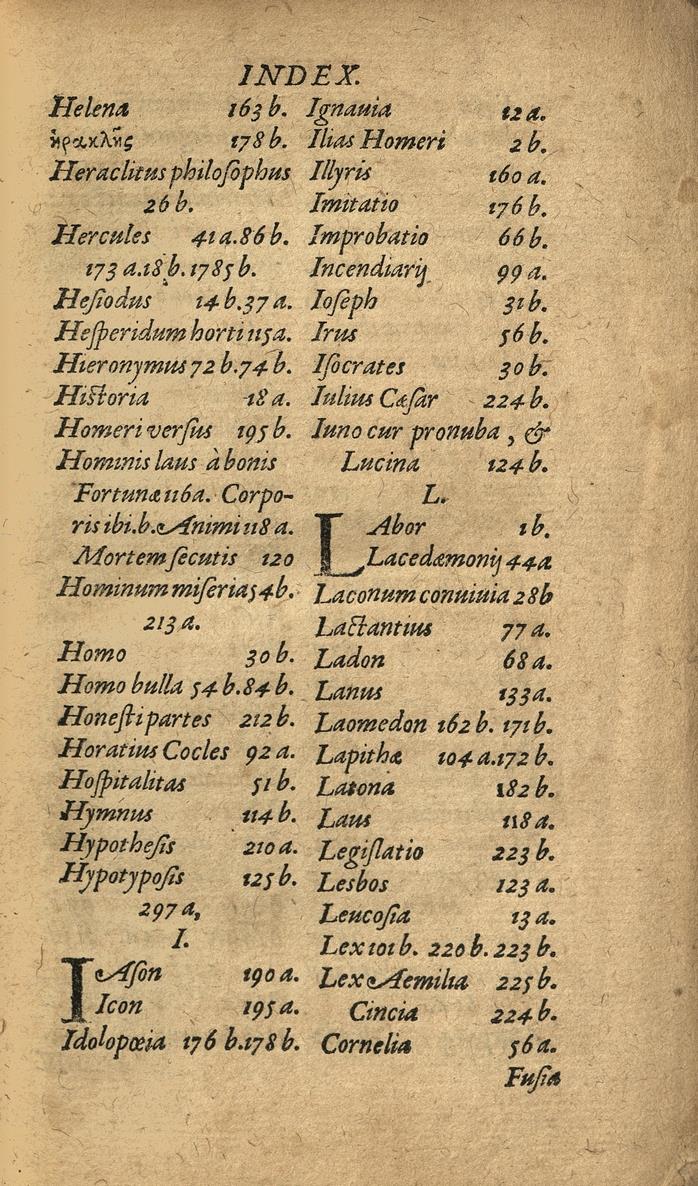 INDEX.
Helena 163 b.
ἡρακλῆς 178 b.
Heraclitus philoſophus
26 b.
Hercules 41 a. 86 b.
173 a. 18 b. 1785 b.
Heſiodus 14 b. 37 a.
Heſperidum horti 115 a.
Hieronymus 72 b. 74 b.
Hiſtoria 18 a.
Homeri verſus 195 b.
Hominis laus à bonis
Fortunæ 116 a. Corpo-
ris ibi. b. Animi 118 a.
Mortem ſecutis 120
Hominum miseria 54 b.
213 a.
Homo 30 b.
Homo bulla 54 b. 84 b.
Honeſti partes 212 b.
Horatius Cocles 92 a.
Hoſpitalitas 51 b.
Hymnus 114 b.
Hypotheſis 210 a.
Hypotypoſis 125 b.
297 a,
I.
IAſon 190 a.
Icon 195 a.
Idolopœia 176 b. 178 b.
Ignauia 12 a.
Ilias Homeri 2 b.
Illyris 160 a.
Imitatio 176 b.
Improbatio 66 b.
Incendiarij 99 a.
Ioſeph 31 b.
Irus 56 b.
Iſocrates 30 b.
Iulius Cæſar 224 b.
Iuno cur pronuba, &
Lucina 124 b.
L.
LAbor 1 b.
Lacedæmonij 44 a
Laconum conuiuia 28 b
Lactantius 77 a.
Ladon 68 a.
Lanus 133 a.
Laomedon 162 b. 171 b.
Lapithæ 104 a. 172 b.
Latona 182 b.
Laus 118 a.
Legiſlatio 223 b.
Lesbos 123 a.
Leucoſia 13 a.
Lex 101 b. 220 b. 223 b.
Lex Aemilia 225 b.
Cincia 224 b.
Cornelia 56 a.
Fuſia